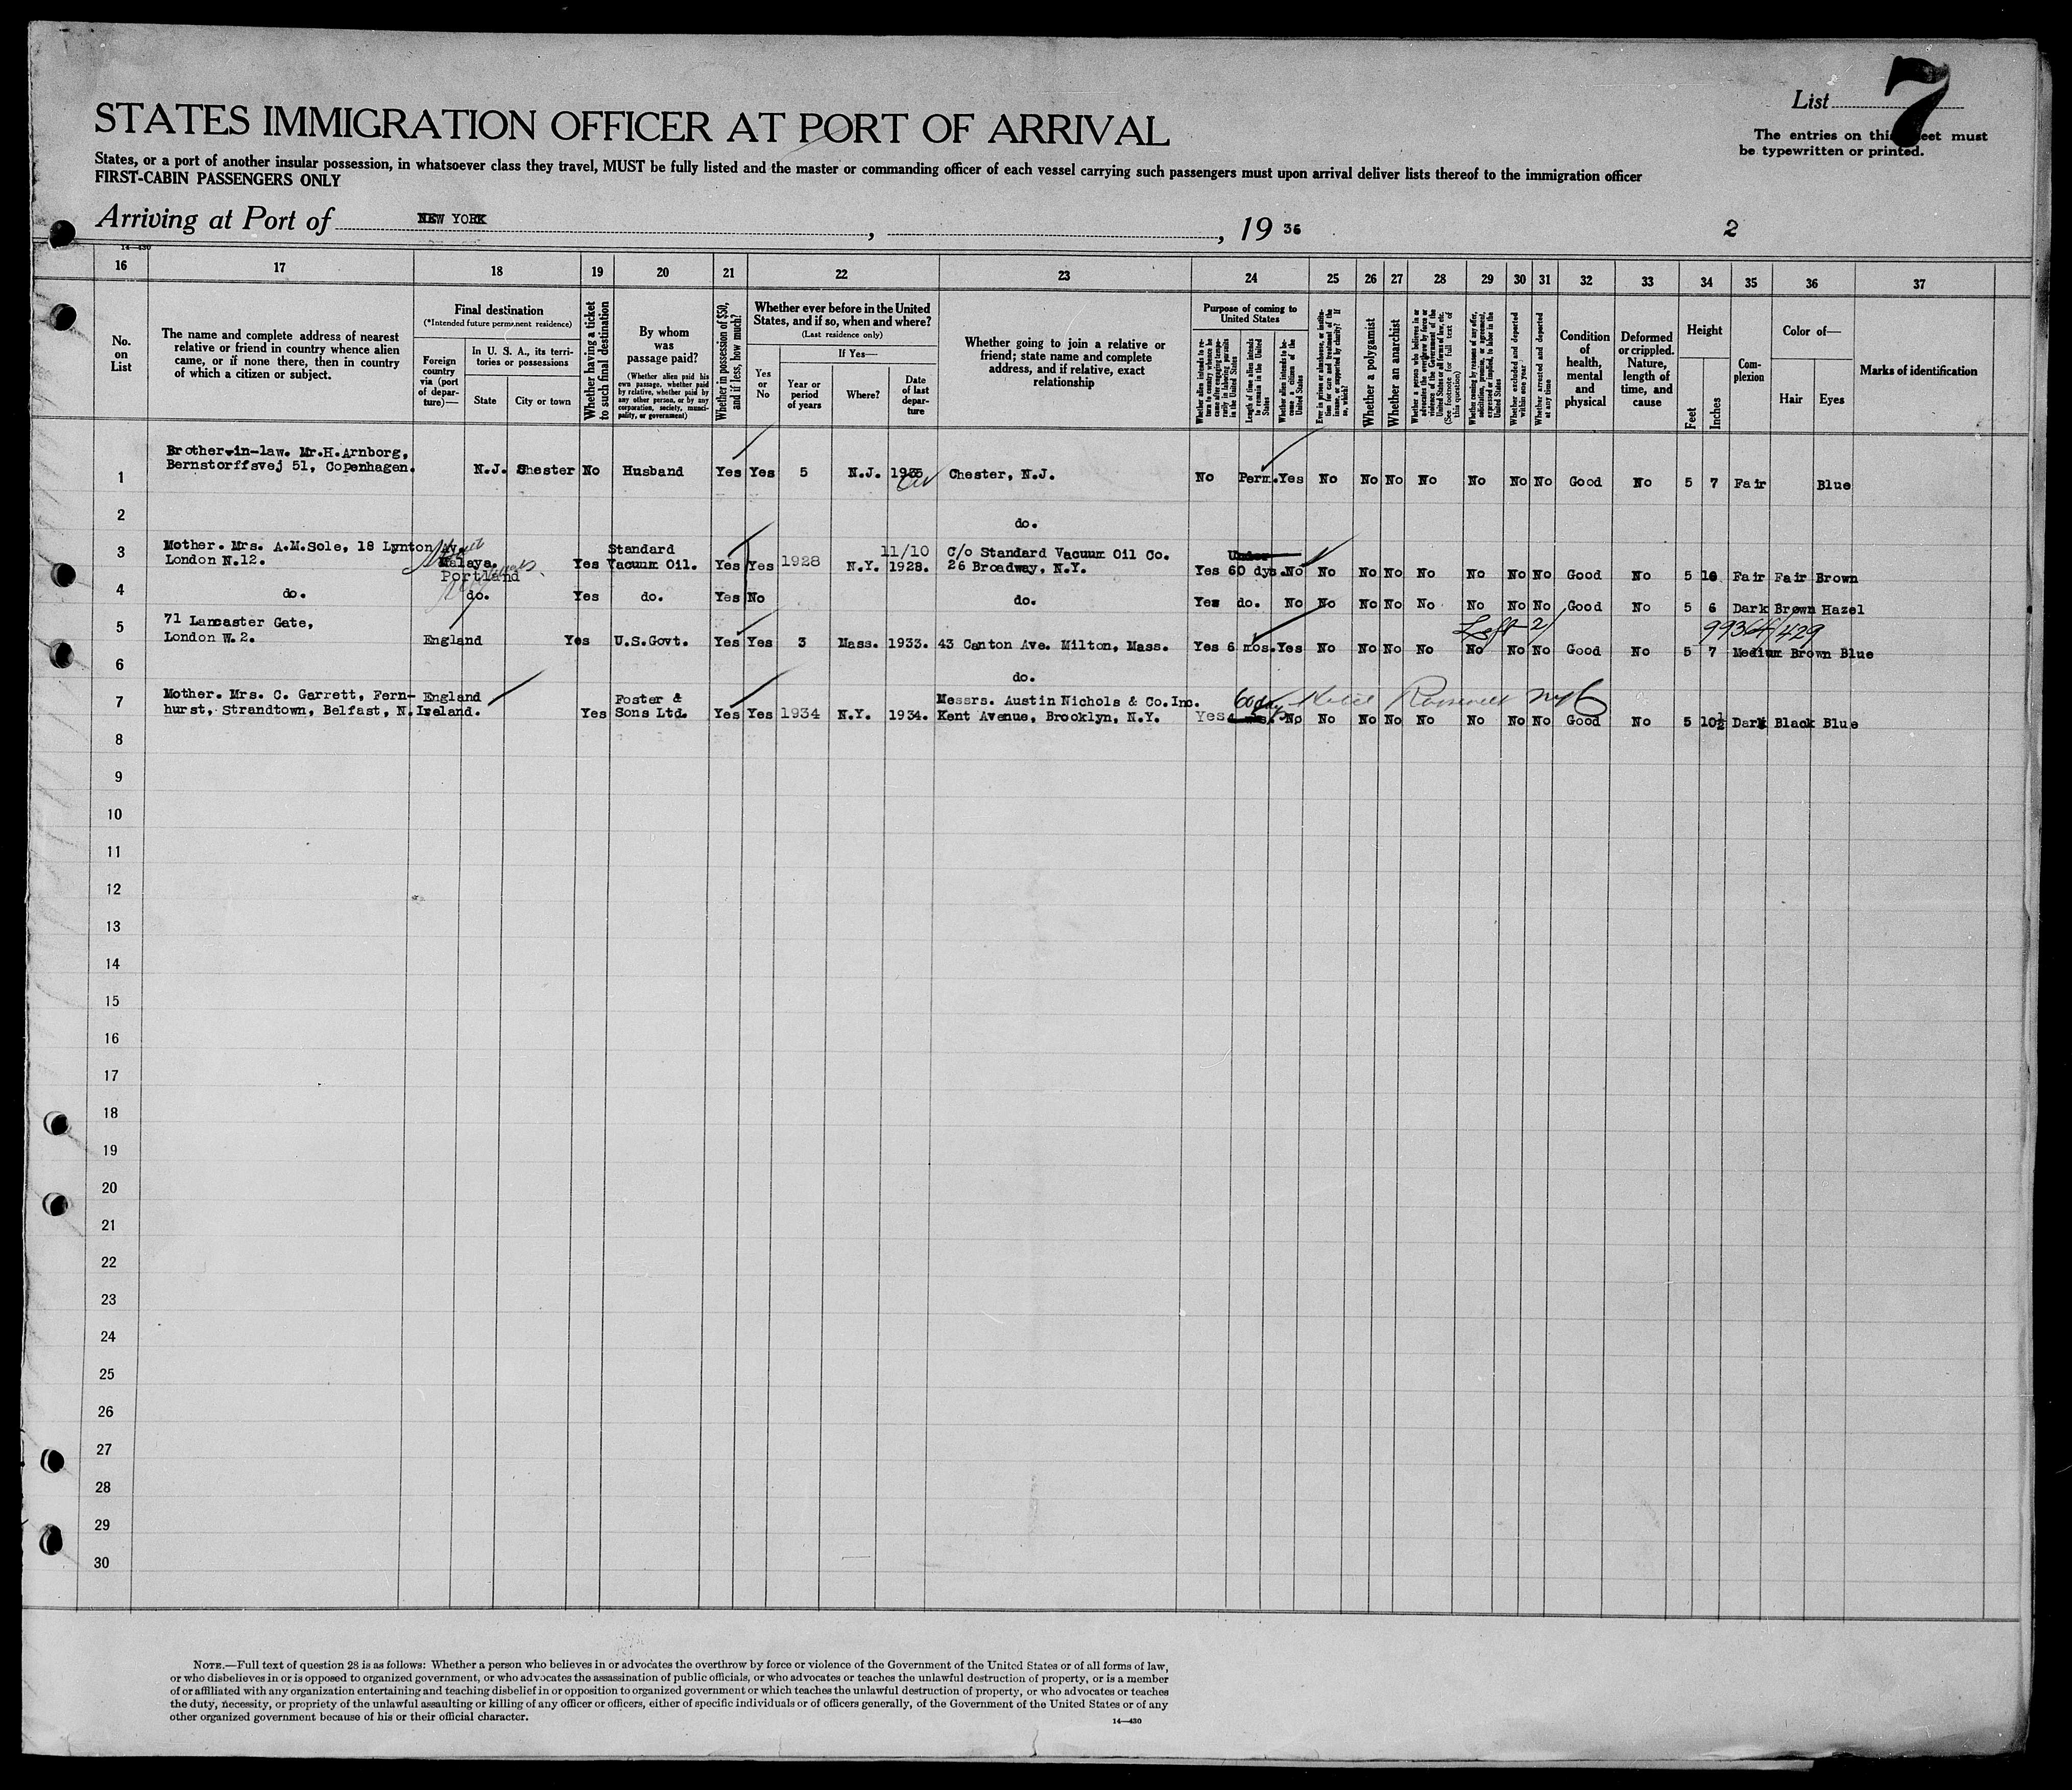 List 7
The entries on this sheet must
be typewritten or printed.
STATES IMMIGRATION OFFICER AT PORT OF ARRIVAL
States, or a port of another insular possession, in whatsoever class they travel, MUST be fully listed and the master or commanding officer of each vessel carrying such passengers must upon arrival deliver lists thereof to the immigration officer
FIRST-CABIN PASSENGERS ONLY
Arriving at Port of NEW YORK , , 19 36
2
14—430
16 17 18 19 20 21 22 23 24 25 26 27 28 29 30 31 32 33 34 35 36 37
No. on List
The name and complete address of nearest relative or friend in country whence alien came, or if none there, then in country of which a citizen or subject.
Final destination
(*Intended future permanent residence)
Foreign country via (port of departure)—
In U. S. A., its territories or possessions
State
City or town
Whether having a ticket to such final destination
By whom was passage paid?
(Whether alien paid his own passage, whether paid by relative, whether paid by any other person, or by any corporation, society, municipality, or government)
Whether in possession of $50, and if less, how much?
Whether ever before in the United States, and if so, when and where?
(Last residence only)
Yes or No
If Yes—
Year or period of years
Where?
Date of last departure
Whether going to join a relative or friend; state name and complete address, and if relative, exact relationship
Purpose of coming to United States
Whether alien intends to return to country whence he came after engaging temporarily in laboring pursuits in the United States
Length of time alien intends to remain in the United States
Whether alien intends to become a citizen of the United States
Ever in prison or almshouse, or institution for care and treatment of the insane, or supported by charity? If so, which?
Whether a polygamist
Whether an anarchist
Whether a person who believes in or advocates the overthrow by force or violence of the Government of the United States or all forms of law, etc. (See footnote for full text of this question)
Whether coming by reason of any offer, solicitation, promise, or agreement, expressed or implied, to labor in the United States
Whether excluded and deported within one year
Whether arrested and deported at any time
Condition of health, mental and physical
Deformed or crippled. Nature, length of time, and cause
Height
Feet
Inches
Complexion
Color of—
Hair
Eyes
Marks of identification
1 Brother-in-law. Mr.H.Arnborg, Bernstorffsvej 51, Copenhagen. N.J. Chester No Husband Yes Yes 5 N.J. 1935 Chester, N.J. No Perm. Yes No No No No No No No Good No 5 7 Fair Blue
2 do.
3 Mother. Mrs. A.M.Sole, 18 Lynton Av. London N.12. Malaya. Portland Yes Standard Vacuum Oil. Yes Yes 1928 N.Y. 11/10 1928. C/o Standard Vacuum Oil Co. 26 Broadway, N.Y. Yes 60 dys. No No No No No No No No Good No 5 10 Fair Fair Brown
4 do. do. Yes do. Yes No do. Yes do. No No No No No No No No Good No 5 6 Dark Brown Hazel
5 71 Lancaster Gate, London W.2. England Yes U.S.Govt. Yes Yes 3 Mass. 1933. 43 Canton Ave. Milton, Mass. Yes 6 mos. Yes No No No No No No No Good No 5 7 Medium Brown Blue
99364/429
6 do.
7 Mother. Mrs. C. Garrett, Fernhurst, Strandtown, Belfast, N.Ireland. England Yes Foster & Sons Ltd. Yes Yes 1934 N.Y. 1934. Messrs. Austin Nichols & Co.Inc. Kent Avenue, Brooklyn, N.Y. Yes No No No No No No No No Good No 5 10½ Dark Black Blue
Hotel Roosevelt NYC
8
9
10
11
12
13
14
15
16
17
18
19
20
21
22
23
24
25
26
27
28
29
30
NOTE.—Full text of question 28 is as follows: Whether a person who believes in or advocates the overthrow by force or violence of the Government of the United States or of all forms of law,
or who disbelieves in or is opposed to organized government, or who advocates the assassination of public officials, or who advocates or teaches the unlawful destruction of property, or is a member
of or affiliated with any organization entertaining and teaching disbelief in or opposition to organized government or which teaches the unlawful destruction of property, or who advocates or teaches
the duty, necessity, or propriety of the unlawful assaulting or killing of any officer or officers, either of specific individuals or of officers generally, of the Government of the United States or of any
other organized government because of his or their official character.
14—430